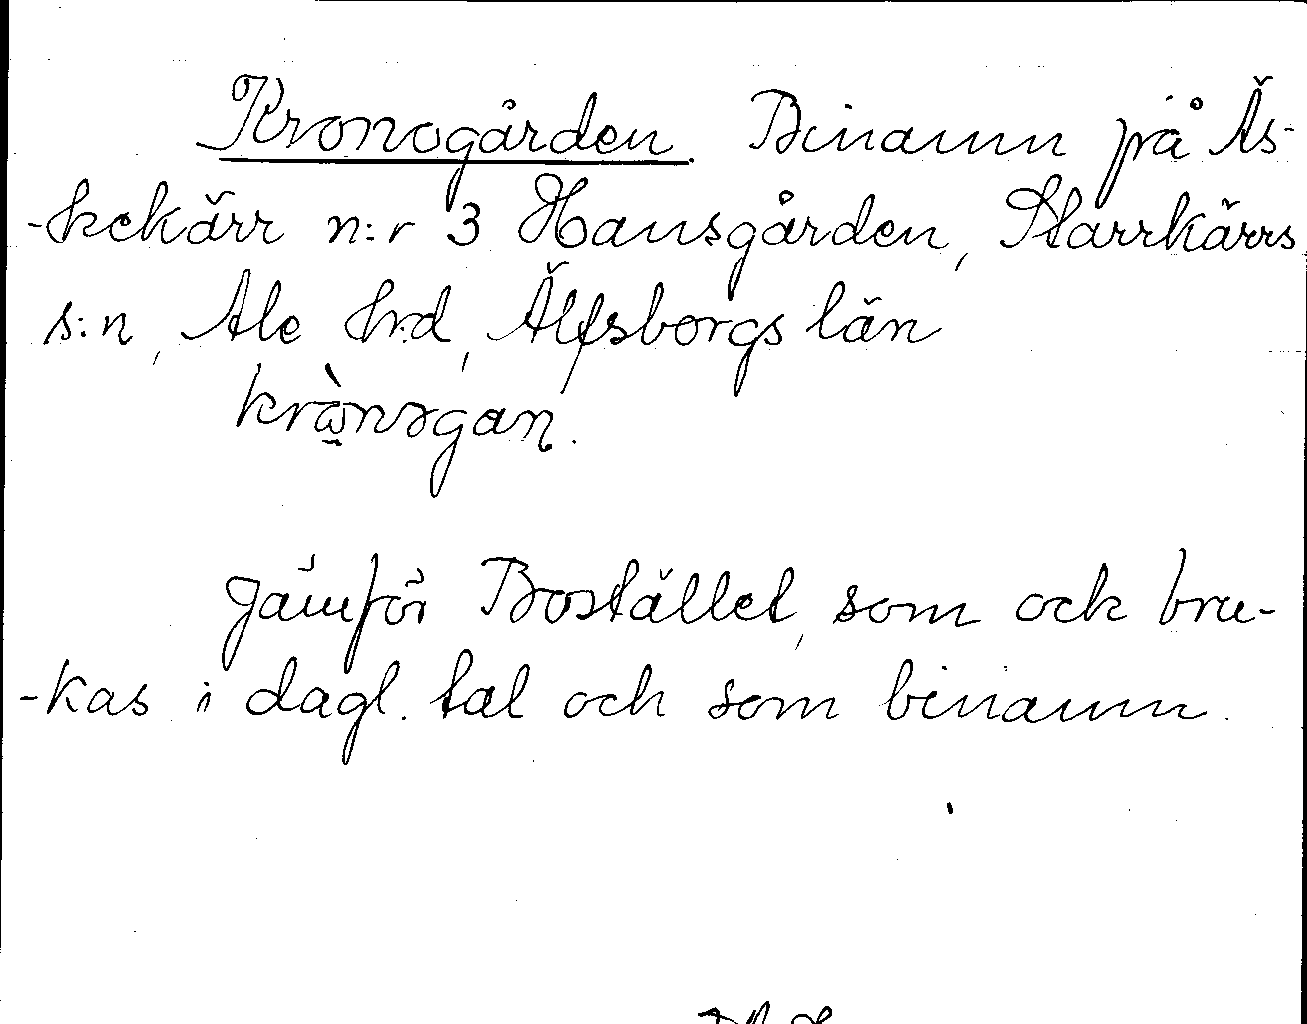 Kronogården. Binamn på Äs-
-kekärr n:r 3 Hansgården, Starrkärrs
s:n, Ale hrd, Älfsborgs län
Jämför Bostället, som ock bru-
-kas i dagl. tal och som binamn.